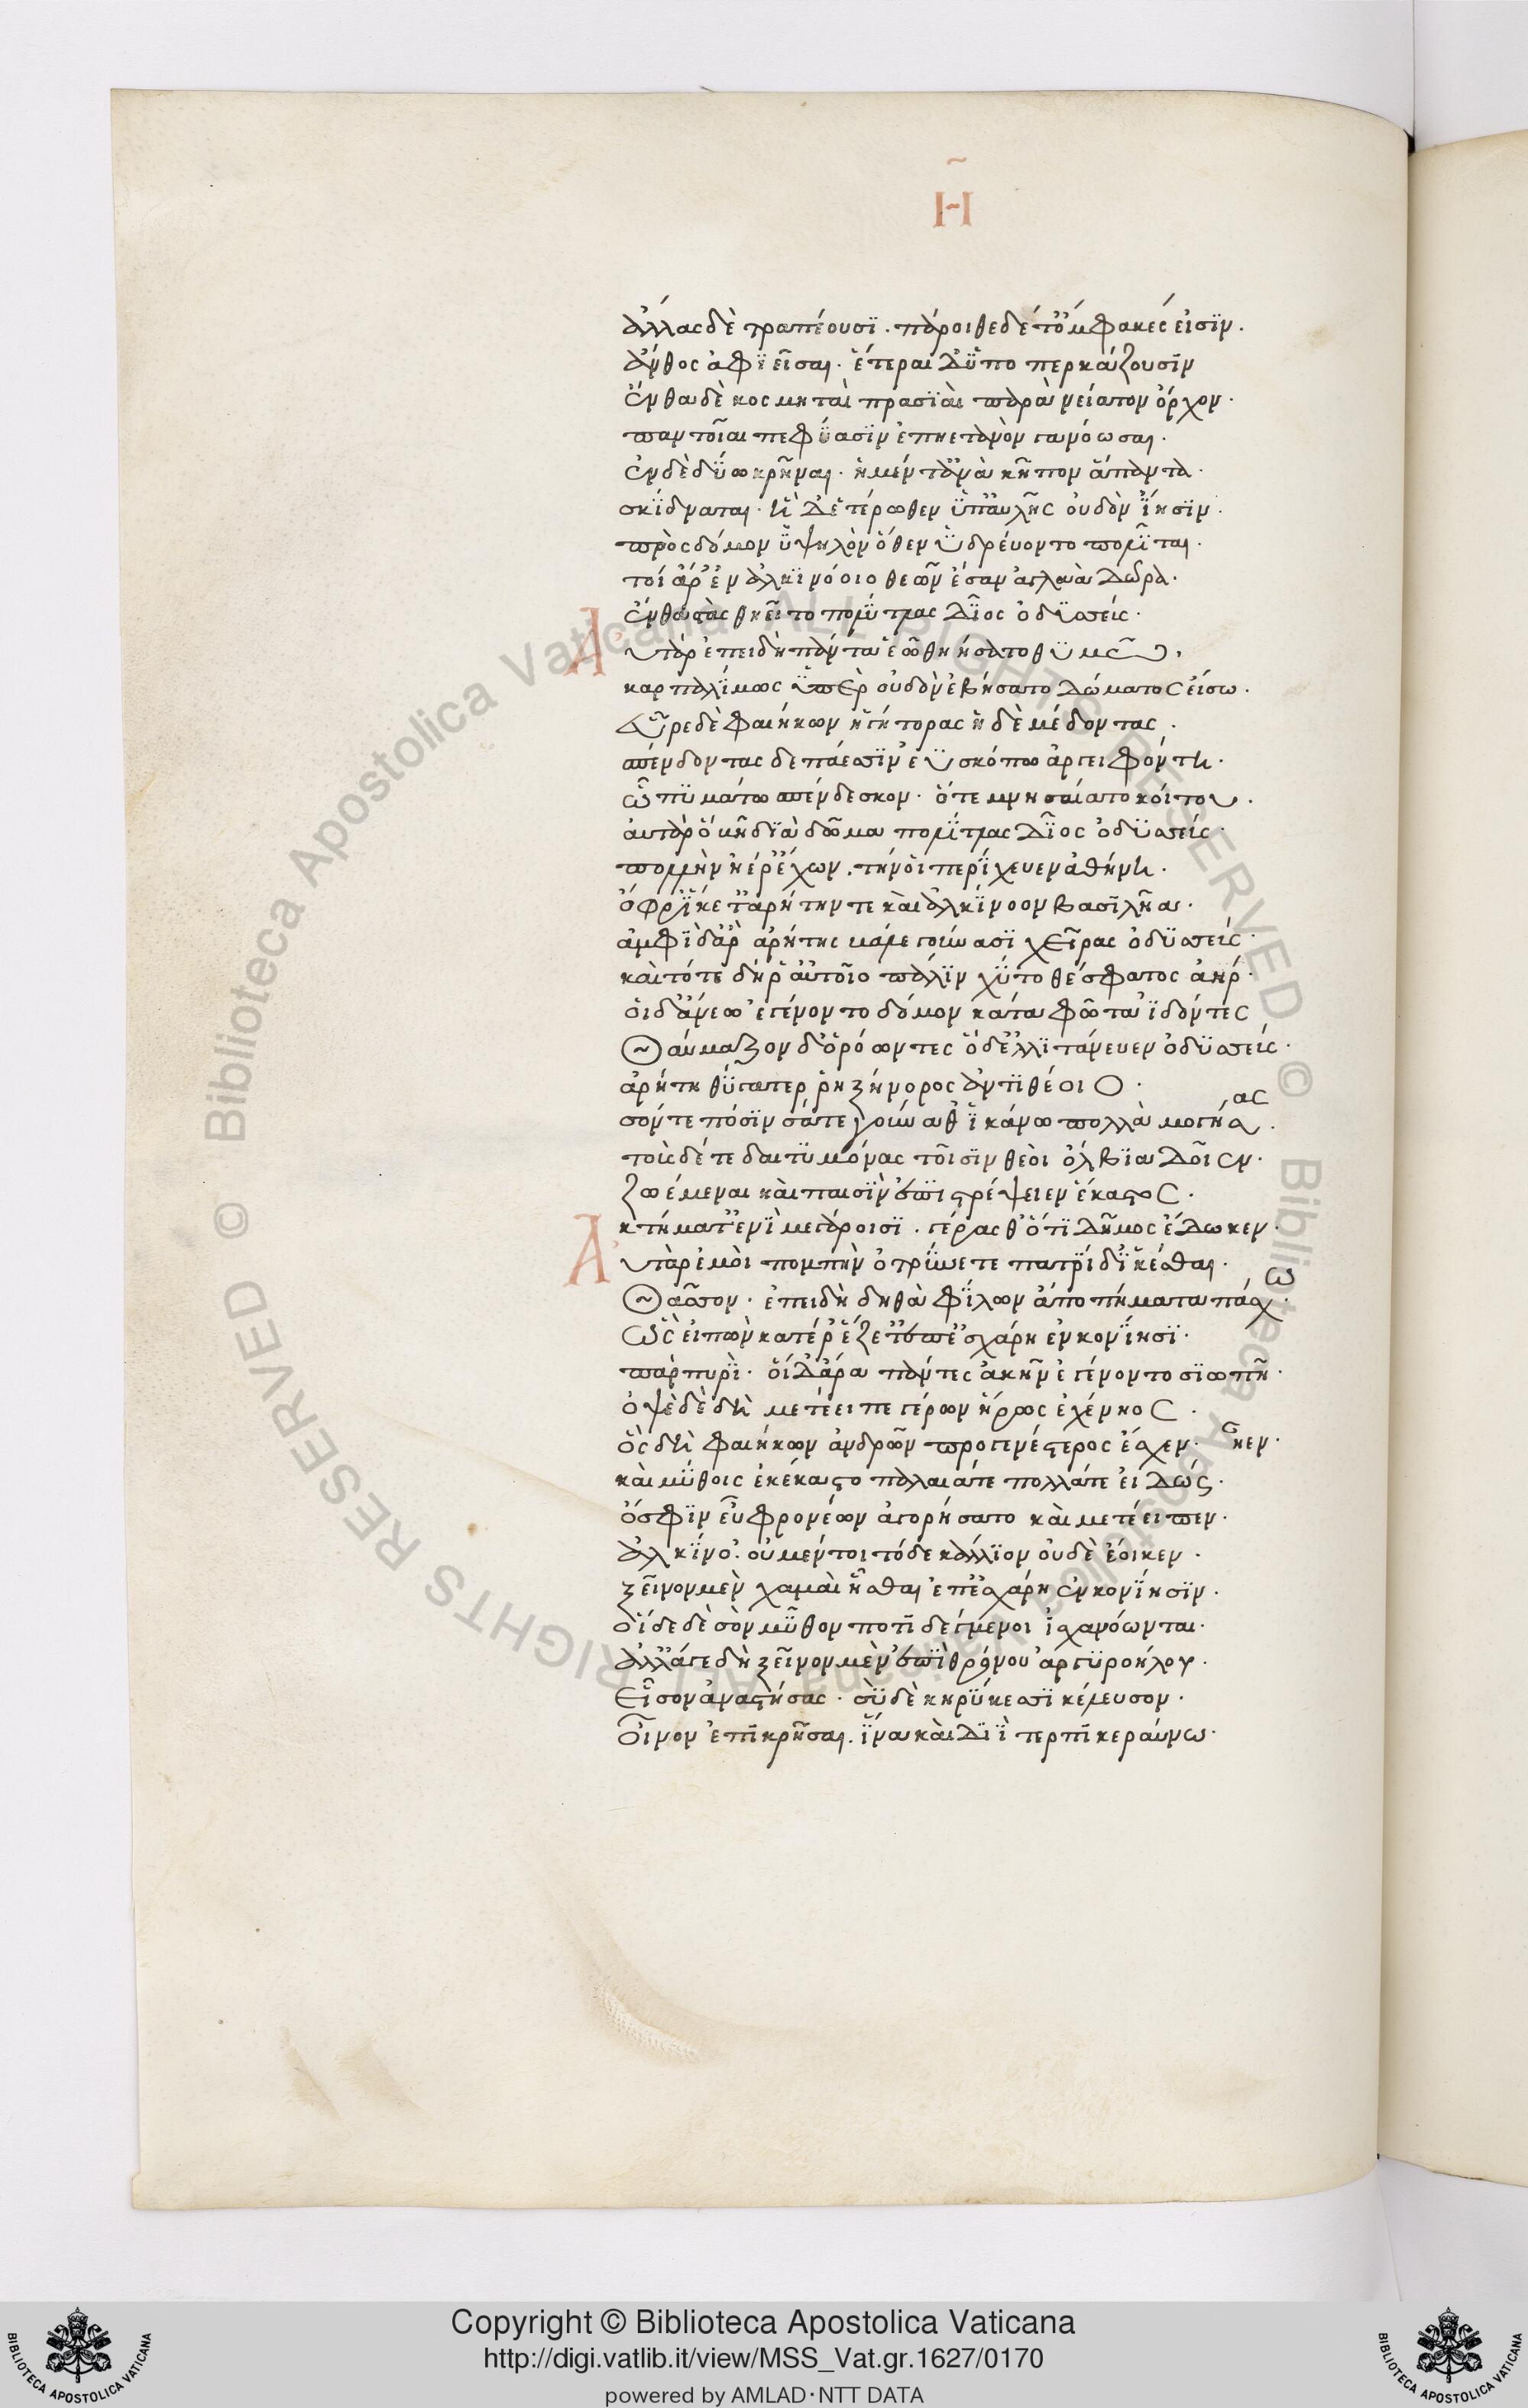 Η
ἄλλας δὲ τραπέουσι. πάροιθε δέ τ' ὄμφακές εἰσιν.
ἄνθος ἀφιεῖσαι. ἕτεραι δ' ὑποπερκάζουσιν
ἔνθα δὲ κοσμηταὶ πρασιαὶ παρὰ νείατον ὄρχον.
παντοῖαι πεφύασιν ἐπηετανὸν γανόωσαι.
ἐν δὲ δύω κρῆναι. ἡ μέν τ' ἀνὰ κῆπον ἅπαντα.
σκίδναται. ἡ δ' ἑτέρωθεν ὑπ' αὐλῆς οὐδὸν ἵησιν.
πρὸς δόμον ὑψηλὸν ὅθεν ὑδρεύοντο πολῖται.
τοῖ' ἄρ' ἐν ἀλκινόοιο θεῶν ἔσαν ἀγλαὰ δῶρα.
ἔνθα στὰς θηεῖτο πολύτλας δῖος ὀδυσσεύς.
Αὐτὰρ ἐπειδὴ πάντα ἑῶ θηήσατο θυμῶ.
καρπαλίμως ὑπὲρ οὐδὸν ἐβήσατο δώματος εἴσω.
εὗρε δὲ φαιήκων ἡγήτορας ἠδὲ μέδοντας.
σπένδοντας δεπάεσσιν ἐϋσκόπω ἀργειφόντη.
ὧ πυμάτω σπένδεσκον. ὅτε μνησαίατο κοίτου.
αὐτὰρ ὁ βῆ διὰ δῶμα πολύτλας δῖος ὀδυσσεύς.
πολλὴν ἠέρ' ἔχων. τήν οἱ περίχευεν ἀθήνη.
ὄφρ' ἵκετ' ἀρήτην τε καὶ ἀλκίνοον βασιλῆα.
ἀμφὶ δ' ἄρ' ἀρήτης βάλε γούνασι χεῖρας ὀδυσσεύς.
καὶ τότε δή ῥ' αὐτοῖο πάλιν χύτο θέσφατος ἀήρ.
οἱ δ' ἄνεω ἐγένοντο δόμον κάτα φῶτα ἰδόντες
Θαύμαζον δ' ὁρόωντες ὁ δ' ἐλλιτάνευεν ὀδυσσεύς.
ἀρήτη θύγατερ ῥηξήνορος ἀντιθέοιο.
σόν τε πόσιν σά τε γούναθ' ἱκάνω πολλὰ μογήσας.
τούσδέ τε δαιτυμόνας τοῖσιν θεοὶ ὄλβια δοῖεν.
ζωέμεναι καὶ παισὶν ἐπιτρέψειεν ἕκαστος.
κτήματ' ἐνὶ μεγάροισι. γέρας θ' ὅ τι δῆμος ἔδωκεν.
Αὐτὰρ ἐμοὶ πομπὴν ὀτρύνετε πατρίδ' ἱκέσθαι.
Θᾶσσον. ἐπειδὴ δηθὰ φίλων ἄπο πήματα πάσχω.
Ὣς εἰπὼν κατ' ἄρ' ἕζετ' ἐπ' ἐσχάρη ἐν κονίησι.
πὰρ πυρὶ. οἱ δ' ἄρα πάντες ἀκὴν ἐγένοντο σιωπῆ.
ὀψὲ δὲ δὴ μετέειπε γέρων ἥρως ἐχένηος.
ὃς δὴ φαιήκων ἀνδρῶν προγενέστερος ἔσχεν. ῆεν.
καὶ μύθοις ἐκέκαστο παλαιά τε πολλά τε εἰδώς.
ὅ σφιν εὐφρονέων ἀγορήσατο καὶ μετέειπεν.
ἀλκίνο'. οὐ μέν τοι τόδε κάλλιον οὐδὲ ἔοικεν.
ξεῖνον μὲν χαμαὶ ἧσθαι ἐπ' ἐσχάρη ἐν κονίησιν.
οἵδε δὲ σὸν μῦθον ποτιδέγμενοι ἰσχανόωνται.
ἀλλ' ἄγε δὴ ξεῖνον μὲν ἐπὶ θρόνου ἀργυροήλου.
εἷσον ἀναστήσας. σὺ δὲ κηρύκεσσι κέλευσον.
οἶνον ἐπικρῆσαι. ἵνα καὶ διῒ τερπικεραύνω.
Copyright © Biblioteca Apostolica Vaticana
http://digi.vatlib.it/view/MSS_Vat.gr.1627/0170
powered by AMLAD·NTT DATA